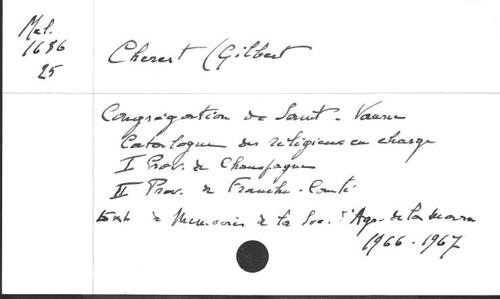 Mel.
1686
25
Cherest (Gilbert
Congrégation de Saint-Vanne
Catalogue des religieux en charge
I Prov. de Champagne
II Prov. de Franche-Comté
de Mémoires de la Soc. d'Agr. de la Marne
1966-1967